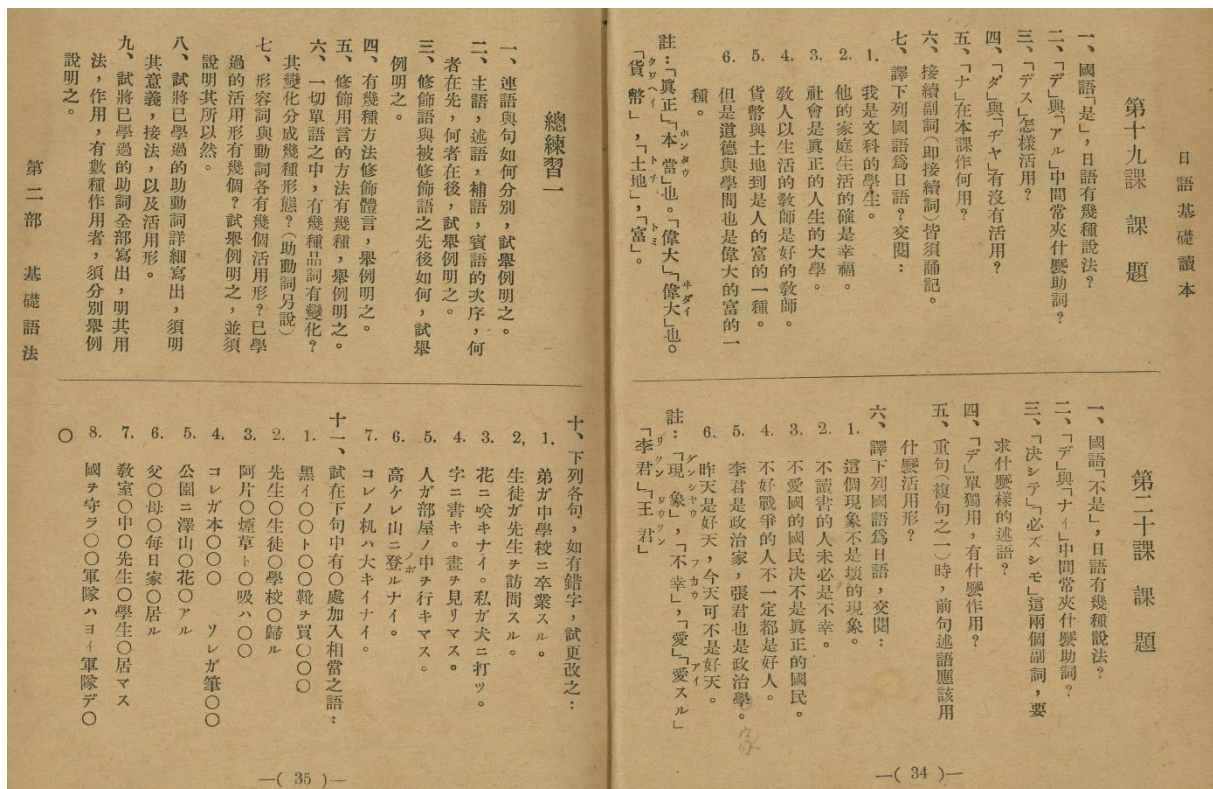 日語基礎讀本
第十九課　課題
一、國語「是」，日語有幾種說法？
二、「デ」與「アル」中間常夾什麼助詞？
三、「デス」怎樣活用？
四、「ダ」與「ヂヤ」有沒有活用？
五、「ナ」在本課作何用？
六、接續副詞（即接續詞）皆須誦記。
七、譯下列國語爲日語？交閱：
1. 我是文科的學生。
2. 他的家庭生活的確是幸福。
3. 社會是真正的人生的大學。
4. 敎人以生活的敎師是好的敎師。
5. 貨幣與土地到是人的富的一種。
6. 但是道德與學問也是偉大的富的一
種。
註：「眞正」「本當」也。「偉大」「偉大」也。
ホンタウ
ヰダイ
「貨幣」，「土地」，「富」。
クワヘイ
トチ
トミ
第二十課　課題
一、國語「不是」，日語有幾種說法？
二、「デ」與「ナイ」中間常夾什麼助詞？
三、「決シテ」「必ズシモ」這兩個副詞，要
求什麼樣的述語？
四、「デ」單獨用，有什麼作用？
五、重句（複句之一）時，前句述語應該用
什麼活用形？
六、譯下列國語爲日語，交閱：
1. 這個現象不是壞的現象。
2. 不讀書的人未必是不幸。
3. 不愛國的國民决不是眞正的國民。
4. 不好戰爭的人不一定都是好人。
5. 李君是政治家，張君也是政治學。
家
6. 昨天是好天，今天可不是好天。
註：「現象」，「不幸」，「愛」「愛スル」
ゲンシヤウ
フカウ
アイ
「李君」「王君」
リクン
ワウクン
—( 34 )—
總練習一
一、連語與句如何分別，試舉例明之。
二、主語，述語，補語，賓語的次序，何
者在先，何者在後，試舉例明之。
三、修飾語與被修飾語之先後如何，試舉
例明之。
四、有幾種方法修飾體言，舉例明之。
五、修飾用言的方法有幾種，舉例明之。
六、一切單語之中，有幾種品詞有變化？
其變化分成幾種形態？（助動詞另說）
七、形容詞與動詞各有幾個活用形？已學
過的活用形有幾個？試舉例明之，並須
說明其所以然。
八、試將已學過的助動詞詳細寫出，須明
其意義，接法，以及活用形。
九、試將已學過的助詞全部寫出，明其用
法，作用，有數種作用者，須分別舉例
說明之。
第二部　基礎語法
十、下列各句，如有錯字，試更改之：
1. 弟ガ中學校ニ卒業スル。
2, 生徒ガ先生ヲ訪問スル。
3. 花ニ咲キナイ。私ガ犬ニ打ツ。
4. 字ニ書キ。畫ヲ見リマス。
5. 人ガ部屋ノ中ヲ行キマス。
6. 高ケレ山ニ登ルナイ。
ノボ
7. コレノ机ハ大キイナイ。
十一、試在下句中有〇處加入相當之語：
1. 黑イ〇〇ト〇〇靴ヲ買〇〇〇
2. 先生〇生徒〇學校〇歸ル
3. 阿片〇煙草ト〇吸ハ〇〇
4. コレガ本〇〇〇　ソレガ筆〇〇
5. 公園ニ澤山〇花〇アル
6. 父〇母〇每日家〇居ル
7. 敎室〇中〇先生〇學生〇居マス
8. 國ヲ守ラ〇〇軍隊ハヨイ軍隊デ〇
〇
—( 35 )—